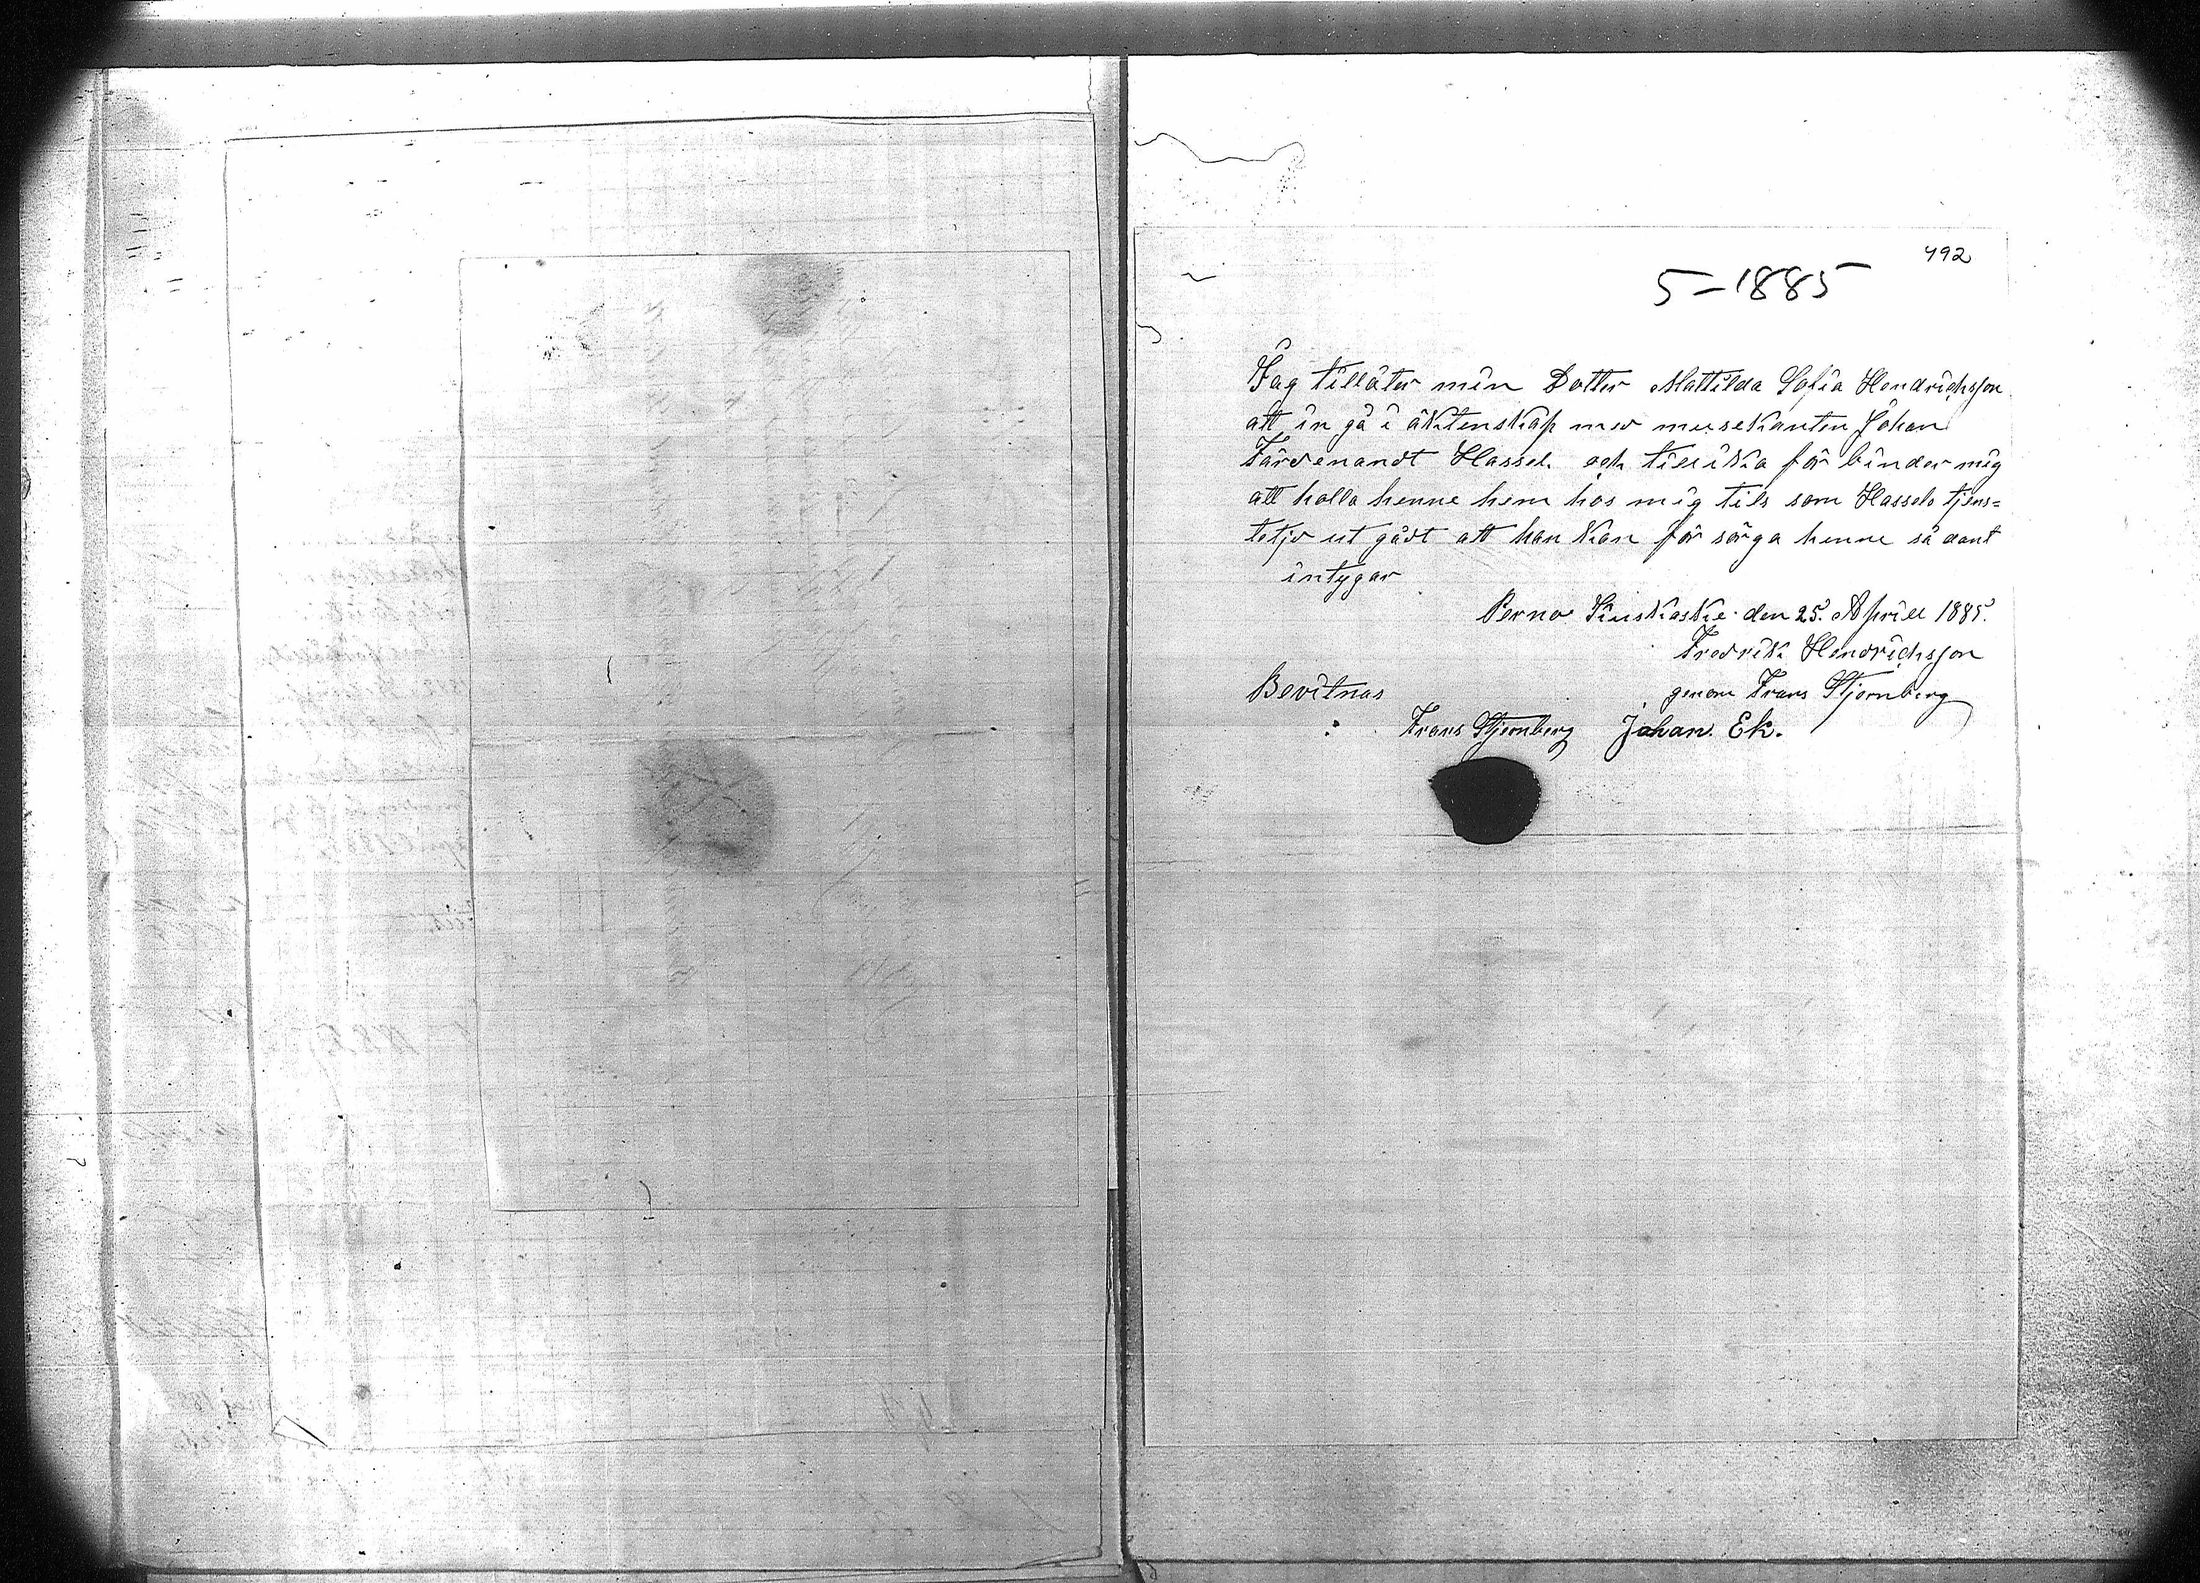 492
5-1885
Jag tillåter min Dotter Mattilda Sofia Hendrichsson
att in gå i äktenskap med musekanten Johan
Färdenandt Hassel. och tillika för binder mig
att holla henne hem hos mig tils som Hassels tjens=
tetjd ut gådt att han kan för sörga henne så dant
intygar
Perno den 25. Aprill 1885.
Fredrik Hendrichsson
Bevitnas genom Frans Stjernberg
Frans Stjernberg Johan Ek.